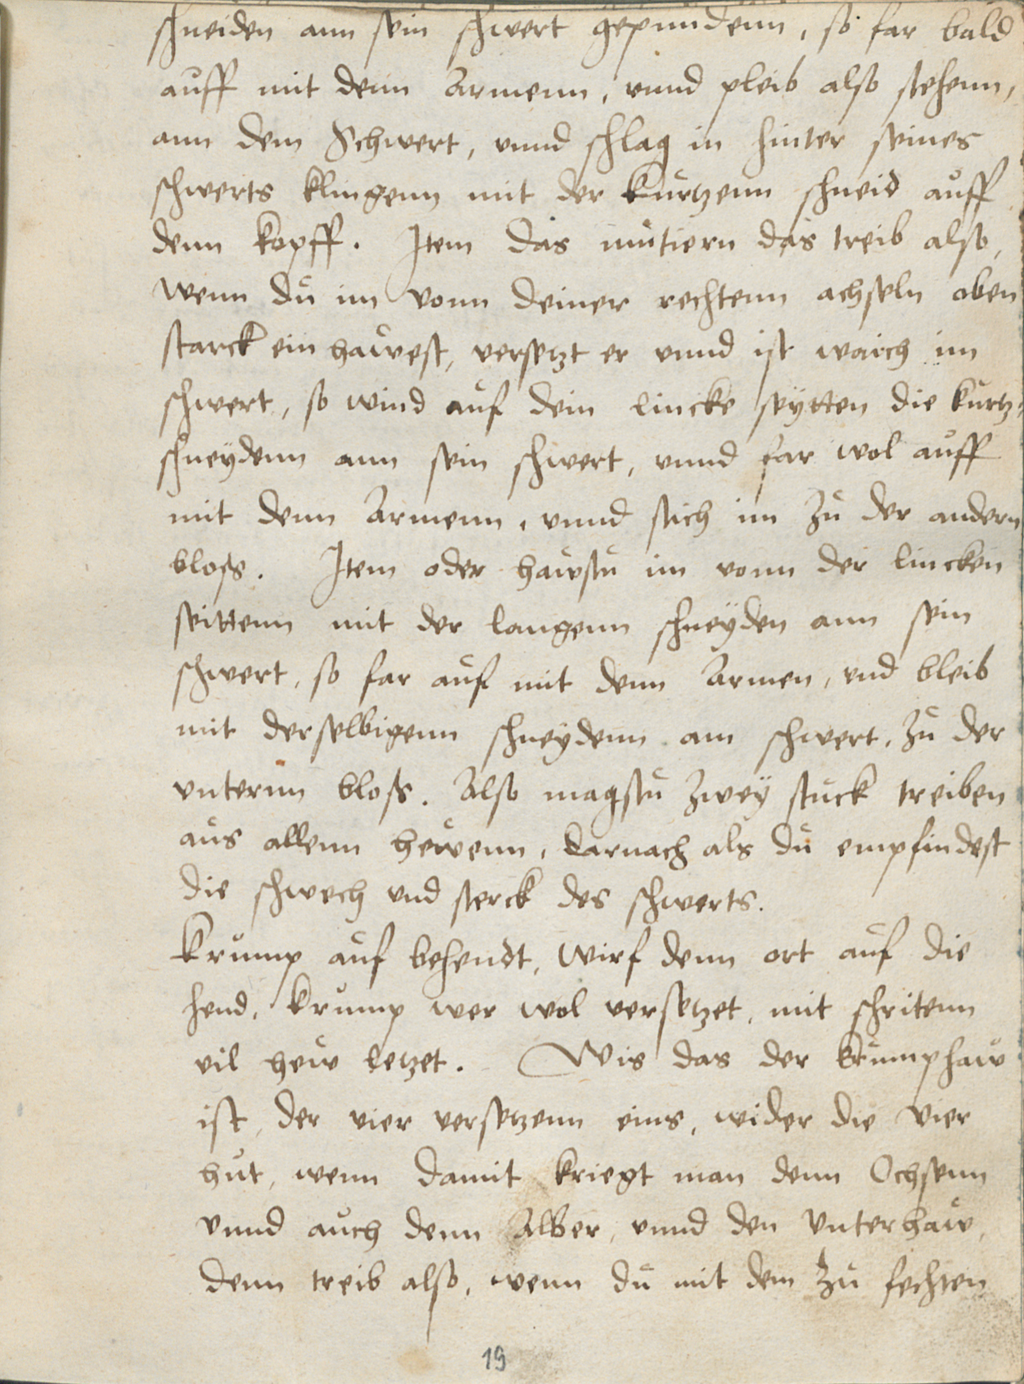 schneiden ann sein schwert gepunndenn, so far bald
auff mit denn Armenn, vnnd pleib also stehenn,
ann dem Schwert, vnnd schlag in hinter seines
schwerts klingenn mit der kurtzenn schneid auff
denn kopff. Item das mutiern das treib also,
wenn du im vonn deiner rechtenn achseln oben
starck ein hawest, versetzt er vnnd ist waich im
schwert, so wind auf dein lincke seÿtten die kurtz=
schneÿdenn ann sein schwert, vnnd far wol auff
mit denn Armenn, vnnd stich im zu der andern
bloss. Item oder hawstu im vonn der lincken
seittenn mit der langenn schneÿden ann sein
schwert, so far auf mit denn Armen, vnd bleib
mit derselbigenn schneÿdenn am schwert, zu der
vnternn bloss. Also magstu zweÿ stuck treiben
aus allenn hewenn, darnach als du empfindest
die schwech vnd sterck des schwerts.
Krump auf behendt, wirf denn ort auf die
hend, krump wer wol versetzet, mit schritenn
vil hew letzet. Wis das der krumphaw
ist, der vier versetzenn eins, wider die vier
hut, wenn damit kriegt man denn Ochsenn
vnnd auch denn Alber, vnnd den vnterhaw,
denn treib also, wenn du mit dem zu fechten
19